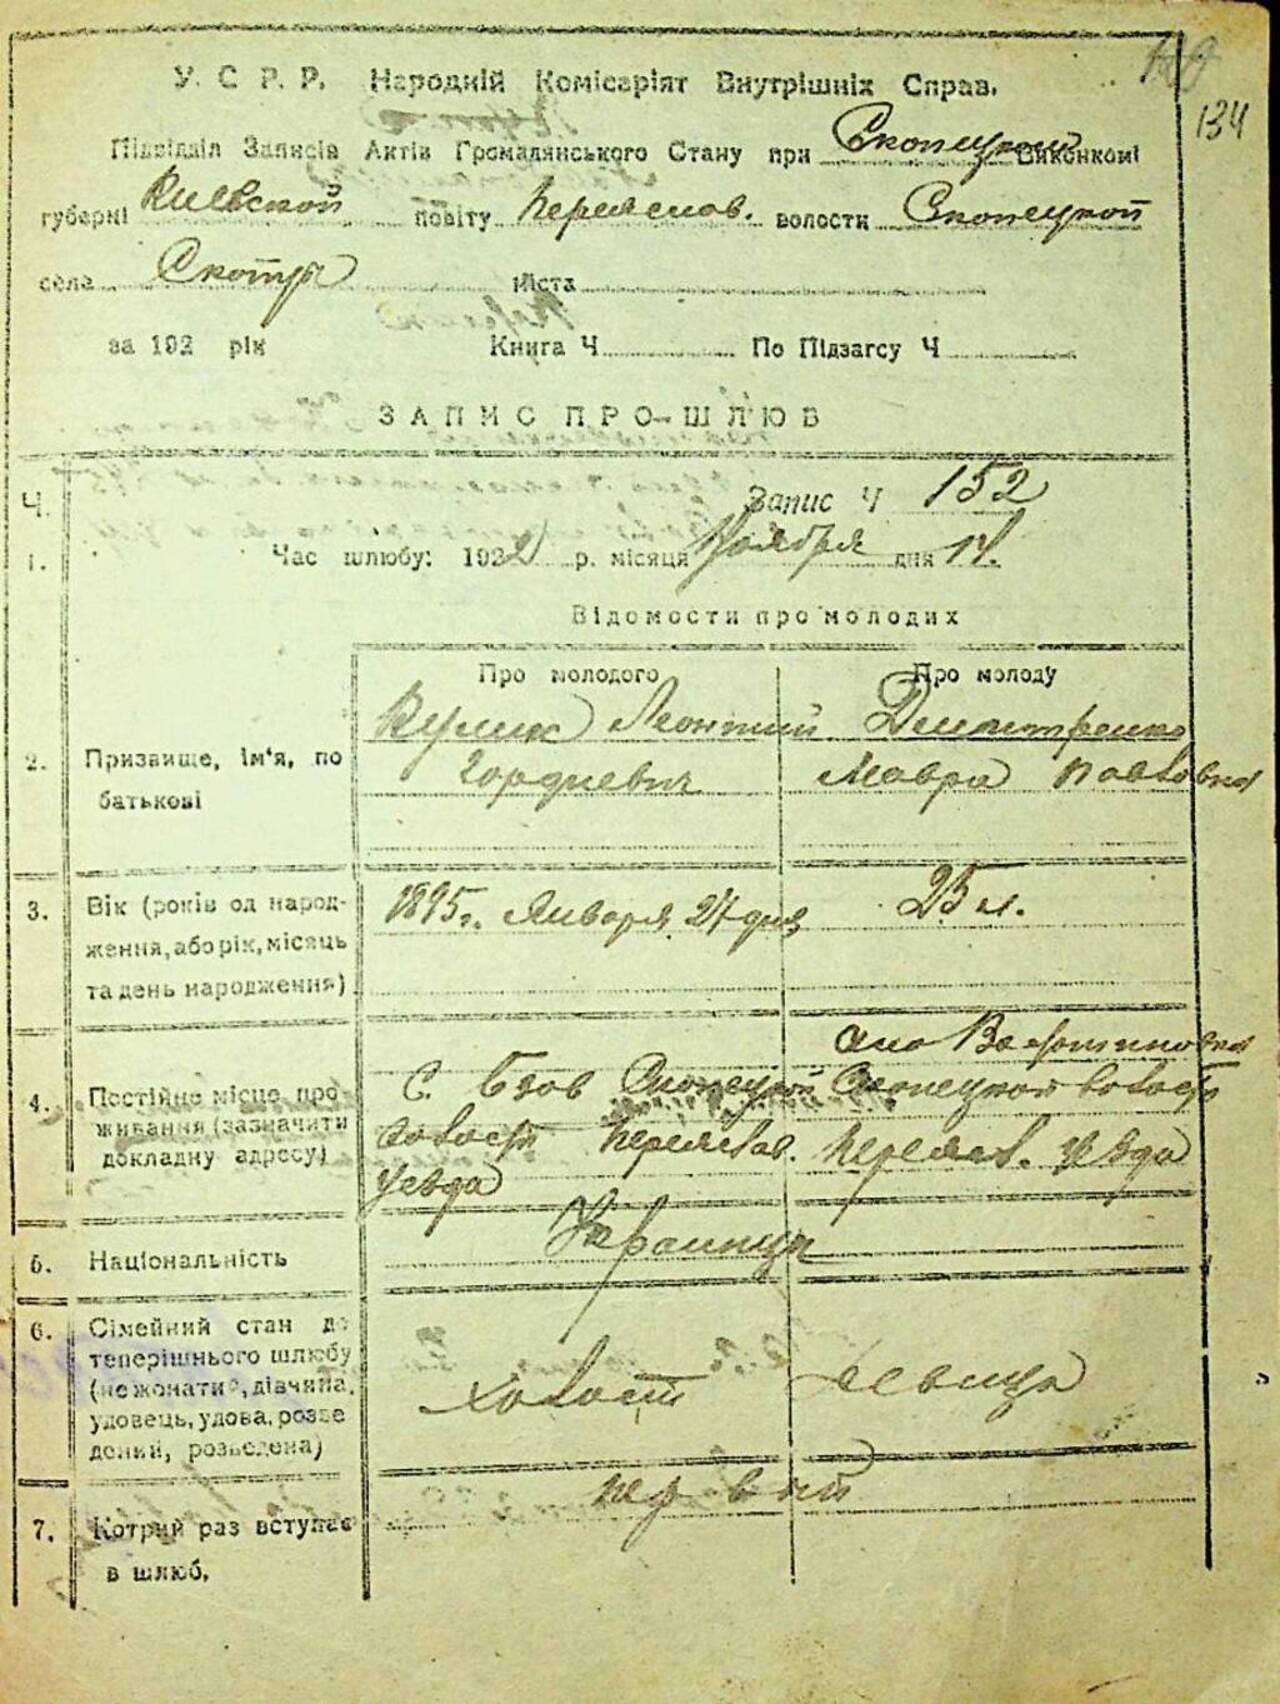 134
У. С. Р. Р. Народній Комісаріят Внутрішніх Справ.
Підвідділ Записів Актів Громадянського Стану при Скопецком Виконкомі
губерні Киевской повіту Переяслав. волости Скопецкой
села місто
за 192 рік Книга Ч По Підзагсу Ч
ЗАПИС ПРО ШЛЮБ
Ч. Запис Ч 152
1. Час шлюбу: 1922 р. місяця Ноября дня
Відомости про молодих
Про молодого Про молоду
2. Призвище, ім'я, по батькові
Кулик Леонтий
Гордиевич
Дмитренко
Мавра Павловна
3. Вік (років од народ-
ження, або рік, місяць
та день народження)
1895 г. Января 27 дня
25 л.
4. Постійне місце про-
живання (зазначити
докладну адресу)
С. Скопецкой
волост Переяслав.
уезда
село
Скопецкой волост
Переясл. уезда
5. Національність
Украинцы
6. Сімейний стан до
теперішнього шлюбу
(нежонатий, дівчина,
удовець, удова, розве
дений, розведена)
холост девица
7. Котрий раз вступає
в шлюб.
первый